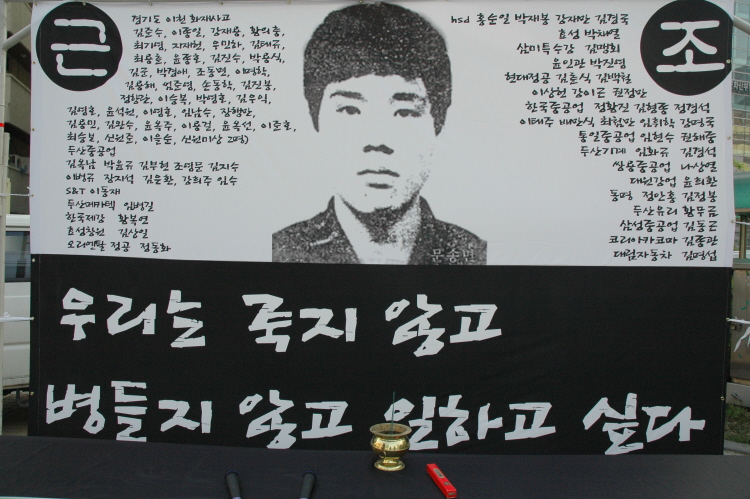 근
조
경기도 이천 화재사고
김준수, 이종일, 강재용, 황의충,
최가영, 지재헌, 우민하, 김태규,
최용춘, 윤종호, 김진수, 박용식,
김군, 박경애, 조동면, 이명학,
김용해, 엄준영, 손동학, 김진봉,
정향란, 이승복, 박영호, 김우익,
김영호, 윤석원, 이영호, 임남수, 장행만,
김용민, 김만수, 윤옥주, 이용걸, 윤옥선, 이준호,
최승복, 신원준, 이을순, 신원미상 2명)
두산중공업
김옥남 박윤규 김부현 조영문 김지수
이병규 장지석 김윤환, 강희주 임수
S&T 이동재
두산메카텍 임병길
한국제강 황복연
효성창원 김상일
오리엔탈 정공 정동화
hsd 홍순일 박재봉 강재만 김경국
효성 박채열
삼미특수강 김맹회
윤인관 박진영
현대정공 김춘식 김박철
이상헌 강이근 권정만
한국중공업 정황진 김형종 정경석
이태주 배만식 최현만 임희학 강명국
통일중공업 임현수 권해중
두산기계 임화규 김경석
쌍용중공업 나상열
대원강업 윤희환
동명 정안홍 김정봉
두산유리 황두금
삼성중공업 김동근
코리아카코마 김종관
대림자동차 김명섭
문송면
우리는 죽지 않고
병들지 않고 일하고 싶다